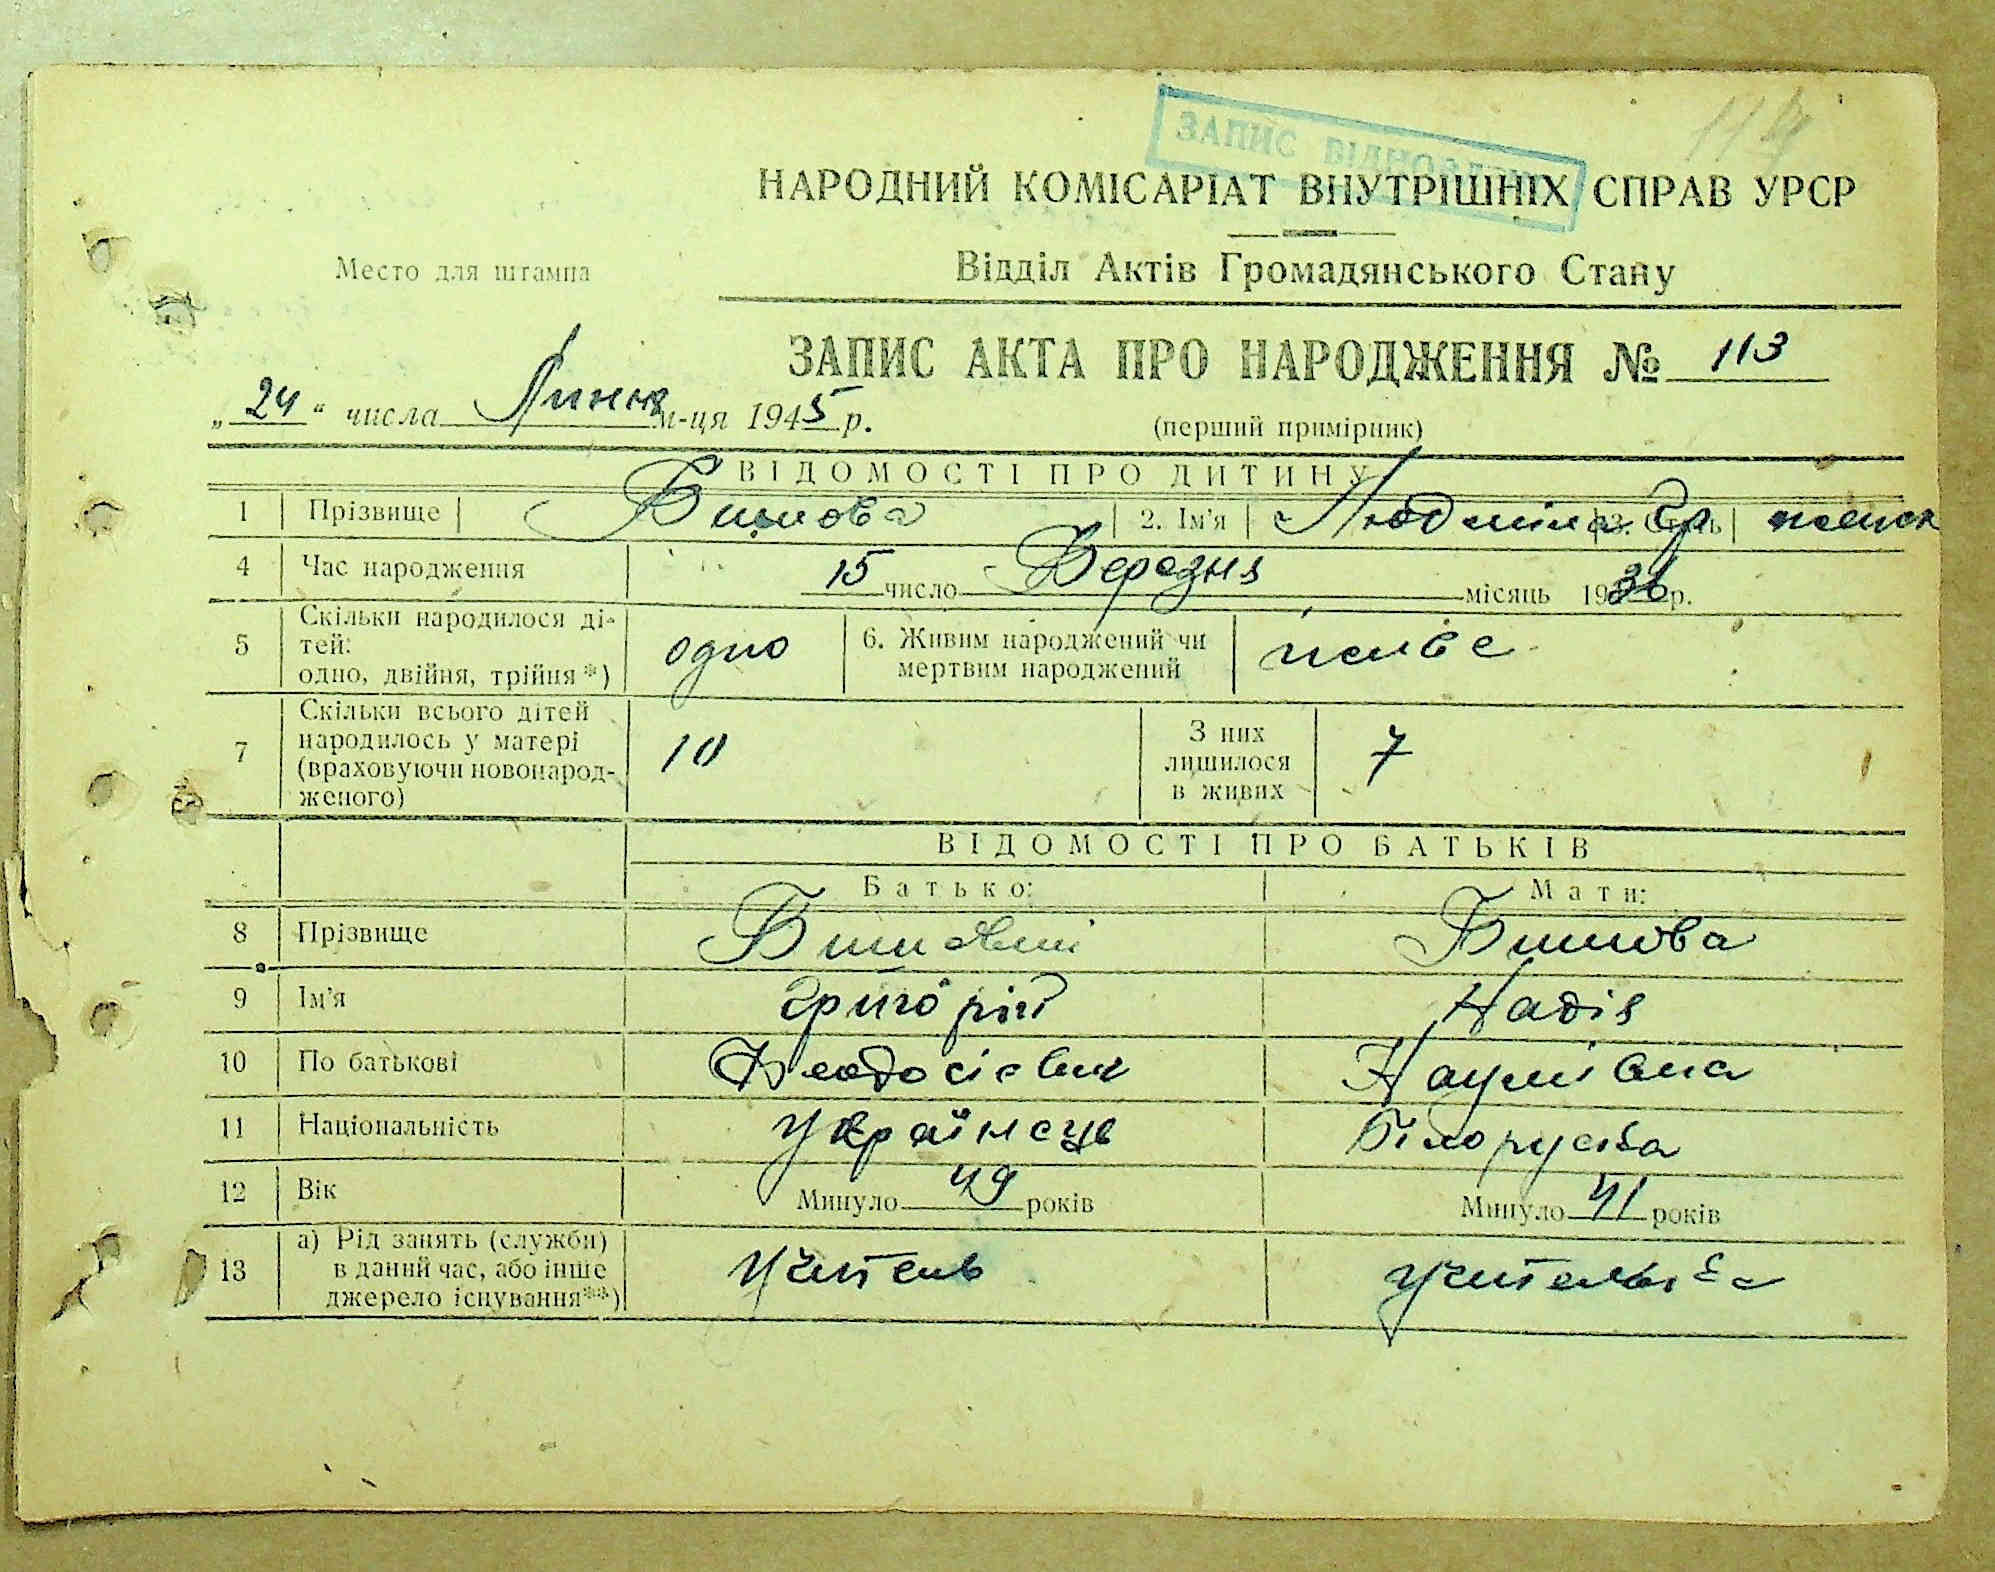 ЗАПИС ВІДНОВЛЕНО
НАРОДНИЙ КОМІСАРІАТ ВНУТРІШНІХ СПРАВ УРСР
Место для штампа
Відділ Актів Громадянського Стану
ЗАПИС АКТА ПРО НАРОДЖЕННЯ № 113
„24“ числа Липня м-ця 1945 р.
(перший примірник)
ВІДОМОСТІ ПРО ДИТИНУ
1 Прізвище 2. Ім'я Людміла Гр 3. Стать
4 Час народження 15 число Березня місяць 1936 р.
5 Скільки народилося ді-
тей:
одно, двійня, трійня *) одно 6. Живим народжений чи
мертвим народжений живе
7 Скільки всього дітей
народилось у матері
(враховуючи новонарод-
женого) 10 З них
лишилося
в живих 7
ВІДОМОСТІ ПРО БАТЬКІВ
Батько: Мати:
8 Прізвище
9 Ім'я Григорій Надія
10 По батькові Феодосієвич Наумівна
11 Національність Українець Білоруска
12 Вік Минуло 49 років Минуло 41 років
13 а) Рід занять (служби)
в даний час, або інше
джерело існування**) Учитель учителька